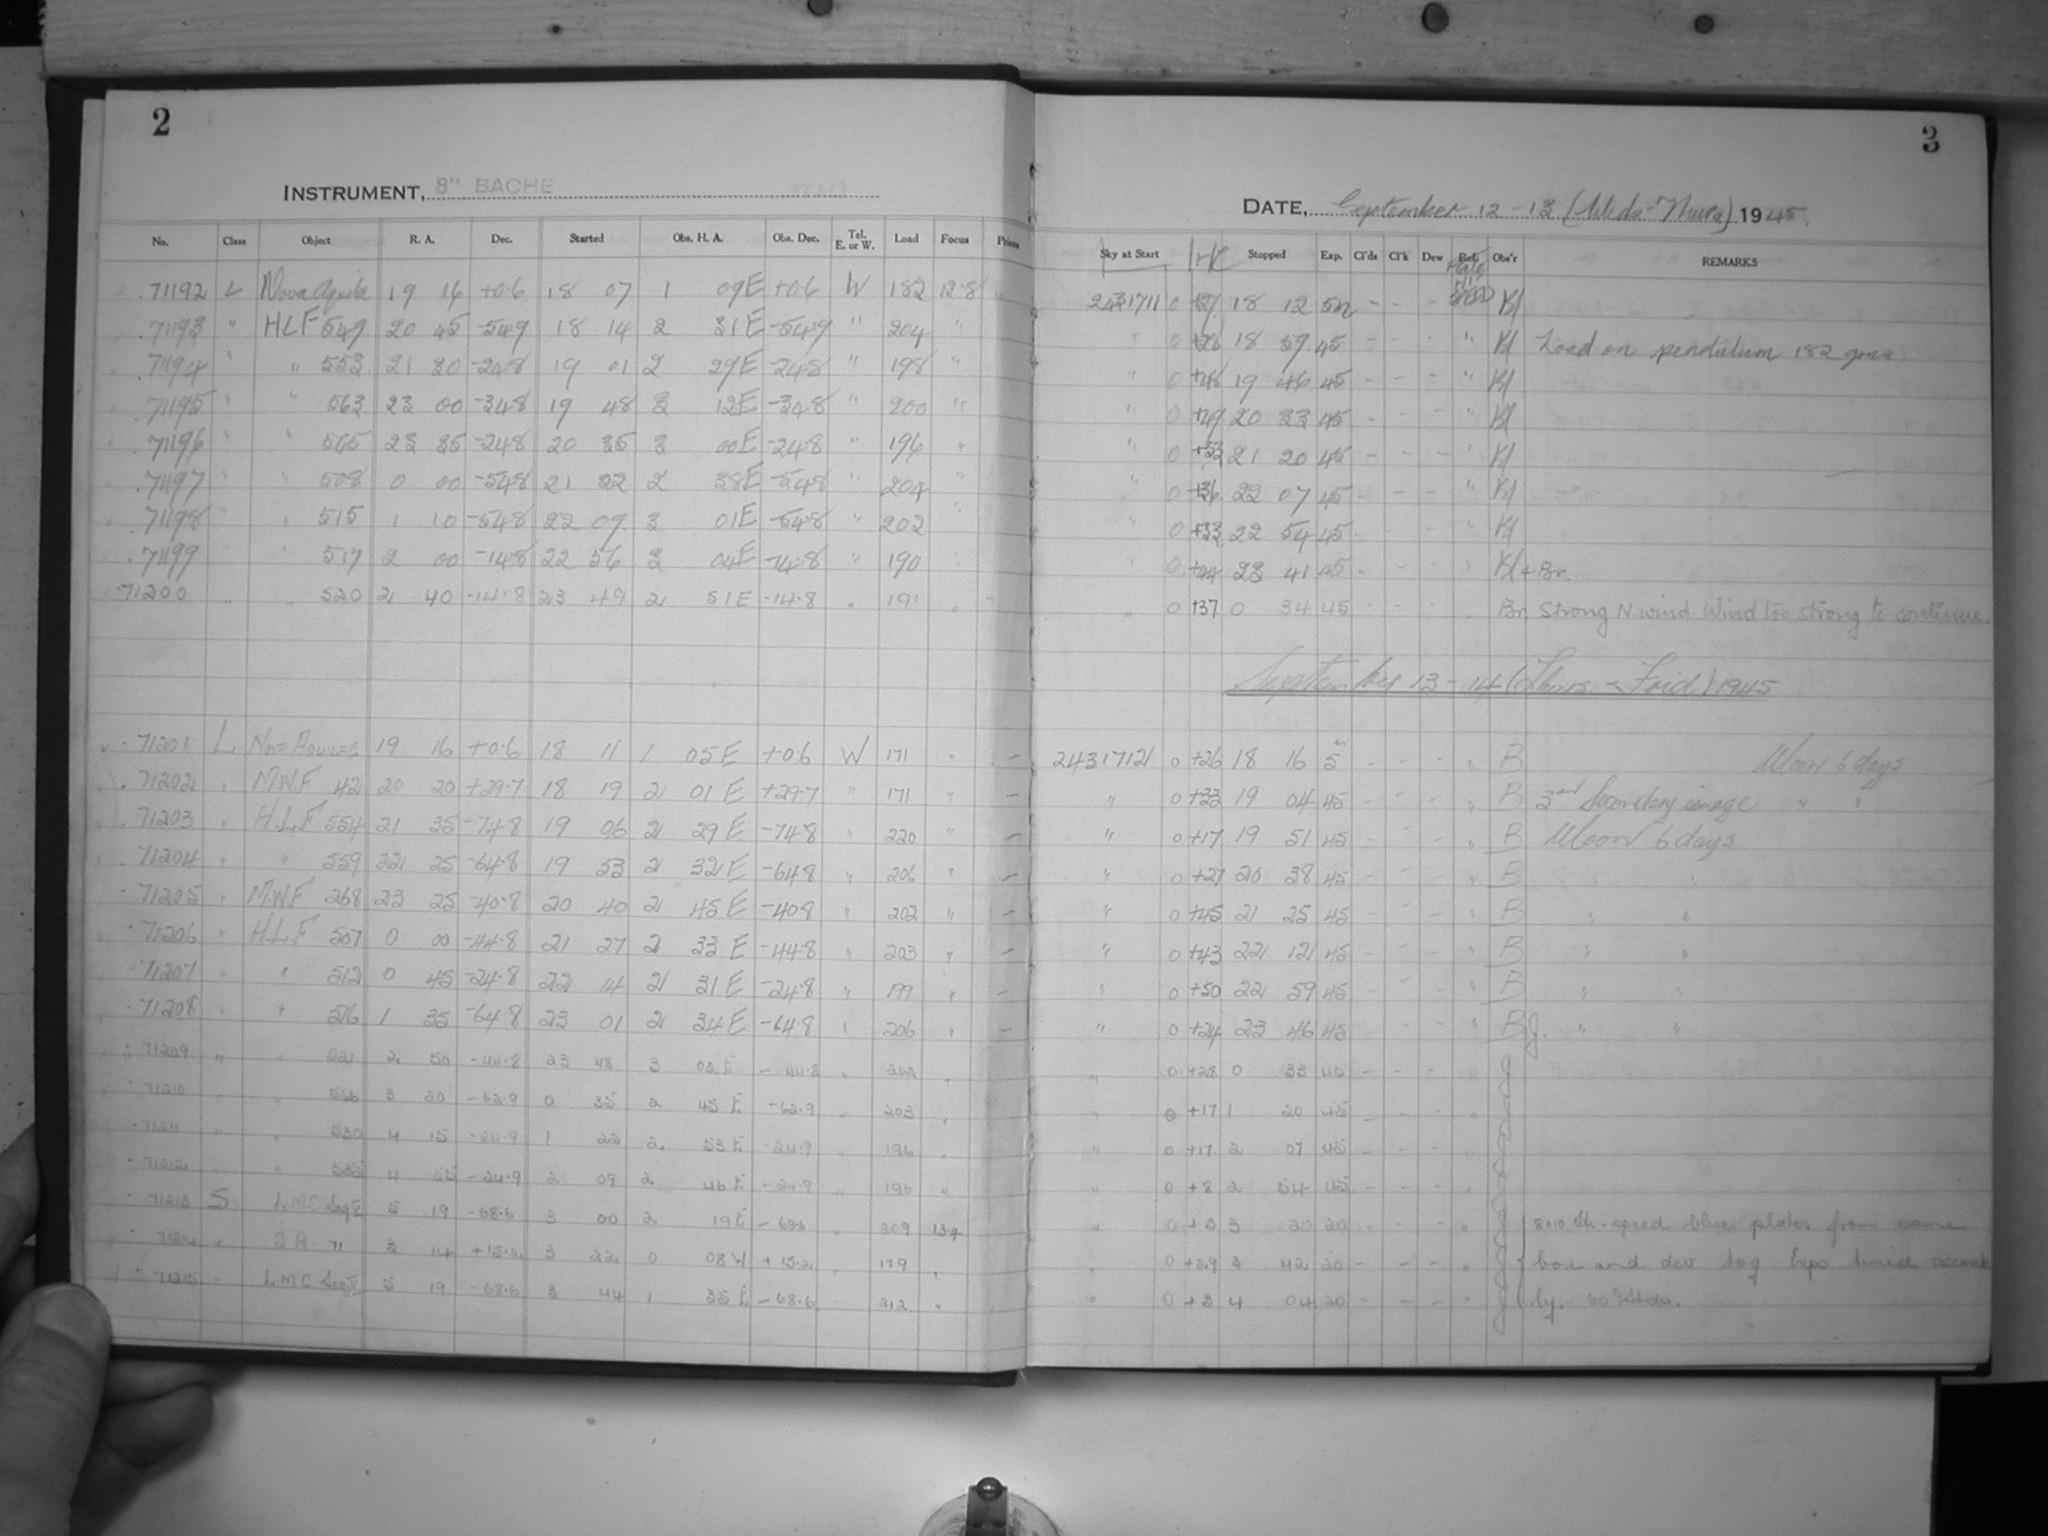 2
INSTRUMENT, 8" BACHE
No. Class Object R. A. Dec. Started Obs. H. A. Obs. Dec. Tel. E. or W. Load Focus Prism
71192 L Nova Aquila 19 16 +0.6 18 07 1 09E +0.6 W 182 12.8
71193 " HLF 549 20 45 -54.9 18 14 2 31E -54.9 " 204 "
71194 " " 553 21 30 -24.8 19 01 2 29E -24.8 " 198 "
71195 " " 563 23 00 -34.8 19 48 3 12E -34.8 " 200 "
71196 " " 565 23 35 -24.8 20 35 3 00E -24.8 " 196 "
71197 " " 508 0 00 -54.8 21 22 2 38E -54.8 " 204 "
71198 " " 515 1 10 -54.8 22 09 3 01E -54.8 " 202 "
71199 " " 517 2 00 -14.8 22 56 3 04E -14.8 " 190 "
71200 " " 520 2 40 -14.8 23 49 2 51E -14.8 " 191 "
71201 L Nova Aquilae 19 16 +0.6 18 11 1 05E +0.6 W 171 " -
71202 " M.W.F 42 20 20 +29.7 18 19 2 01E +29.7 " 171 " -
71203 " H.L.F 554 21 35 -74.8 19 06 2 29E -74.8 " 220 " -
71204 " " 559 22 25 -64.8 19 53 2 32E -64.8 " 206 " -
71205 " M.W.F 268 23 25 -40.8 20 40 2 45E -40.8 " 202 " -
71206 " H.L.F 507 0 00 -44.8 21 27 2 33E -44.8 " 203 " -
71207 " " 512 0 45 -24.8 22 14 2 31E -24.8 " 199 " -
71208 " " 516 1 35 -64.8 23 01 2 34E -64.8 " 206 " -
71209 " " 521 2 50 -44.8 23 48 3 02E -44.8 " 202 "
71210 " " 3 20 -62.9 0 35 2 45E -62.9 " 203 "
71211 " " 530 4 15 -24.9 1 22 2 53E -24.9 " 196 "
71212 " " 535 4 55 -24.9 2 09 2 46E -24.9 " 196 "
71213 S L.M.C. Seq V 5 19 -68.6 3 00 2 19E -68.6 " 209 13.4
71214 " S A 71 3 14 +15.2 3 22 0 08W +15.2 " 179 "
71215 " L.M.C. Seq V 5 19 -68.6 3 44 1 35E -68.6 212 "
3
DATE, September 12-13 (Weds-Thurs) 1945.
Sky at Start Stopped Exp. Cl'ds Cl'k Dew Ref. Plate Obs'r REMARKS
2431711 0 +27 18 12 5m - - - Kl
" 0 +28 18 59 45 - - - " Kl Load on pendulum 182 gms
" 0 +48 19 46 45 - - - " Kl
" 0 +49 20 33 45 - - - " Kl
" 0 +53 21 20 45 - - - " Kl
" 0 +36 22 07 45 - - - " Kl
" 0 +33 22 54 45 - - - " Kl
" 0 23 41 45 - - - " Kl + Br.
" 0 +37 0 34 45 - - - " Br. Strong N wind. Wind too strong to continue.
September 13-14 (Thurs - Frid) 1945
2431712 0 +26 18 16 5m - - - " B Moon 6 days
" 0 +33 19 04 45 - - - " B 3rd Secondary image " "
" 0 +17 19 51 45 - - - " B Moon 6 days
" 0 +27 20 38 45 - - - " B " "
" 0 +45 21 25 45 - - - " B " "
" 0 +43 22 12 45 - - - " B " "
" 0 +50 22 59 45 - - - " B " "
" 0 +24 23 46 45 - - - " B J. " "
" 0 +28 0 33 45 - - - " J
" 0 +17 1 20 45 - - - " J
" 0 +17 2 07 45 - - - " J
" 0 +8 2 54 45 - - - " J
" 0 +3 3 20 20 - - - " J 8x10 speed blue plates from same
" 0 +29 3 42 20 - - - " J box and dev tog. Exps timed accurate
" 0 +3 4 04 20 - - - " J ly.